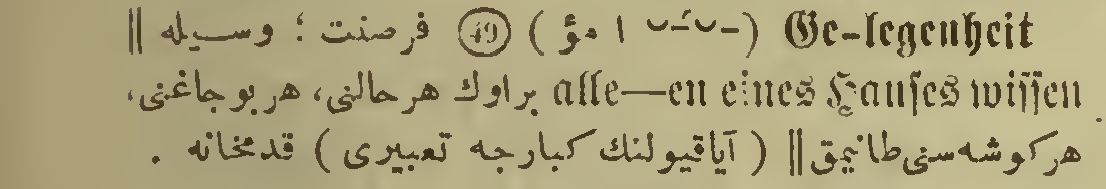 Ge-legenheit (-ᴗ-́ᴗ ا مؤ) (49) فرصنت ؛ وسيله ||
alle—en eines Hauses wissen براوك هر حالنی، هر بوجاغنی،
هر كوشه سنی طانيمق || (آياقيولنك كبارجه تعبيری) قدمخانه .